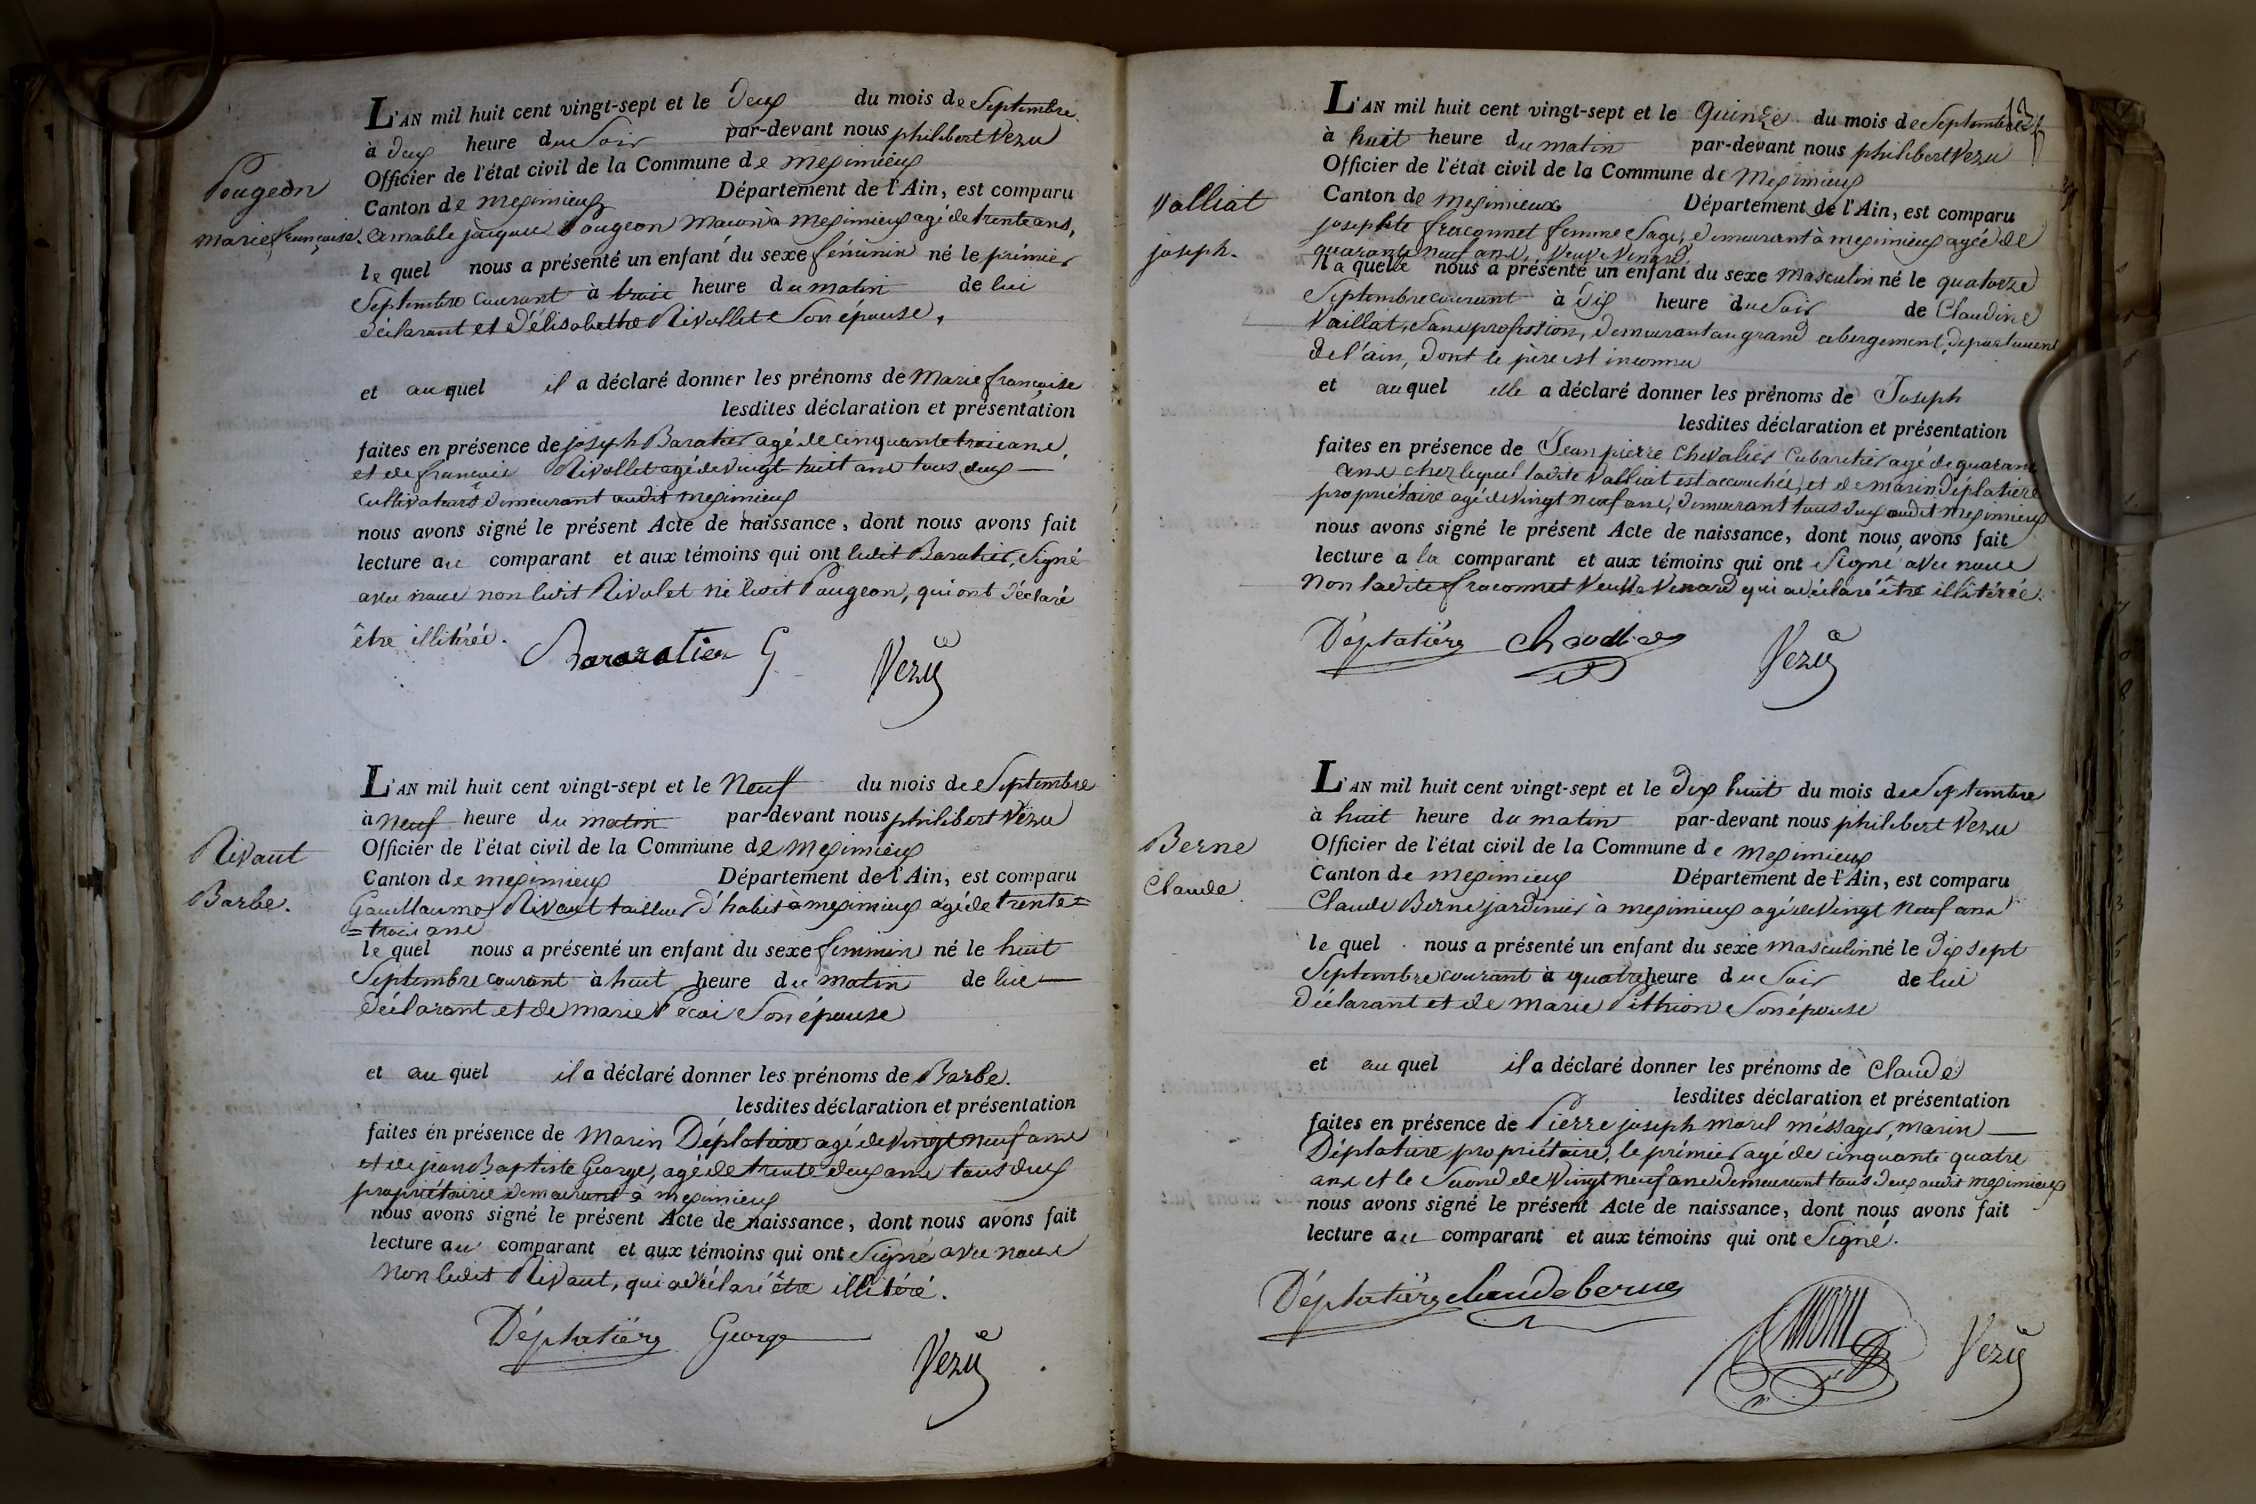 L'AN mil huit cent vingt-sept et le deux du mois de Septembre
à deux heure du Soir par-devant nous philibert Vezu
Officier de l'état civil de la Commune de meximieux
Canton de meximieux Département de l'Ain, est comparu
Pougeon
marie françoise.
amable jacque Pougeon Macon à meximieux agé de trente ans,
le quel nous a présenté un enfant du sexe féminin né le prémier
Septembre courant à trois heure du matin de lui
déclarant et d'élisabethe Rivollet Son épouse,
et au quel il a déclaré donner les prénoms de Marie françoise
lesdites déclaration et présentation
faites en présence de joseph Baratier agé de cinquante trois ans,
et de françois Rivollet agé de vingt huit ans tous deux
Cultivateurs demeurant audit meximieux
nous avons signé le présent Acte de naissance, dont nous avons fait
lecture au comparant et aux témoins qui ont ledit Baratier, Signé
avec nous non ledit Rivolet ni ledit Pougeon, qui ont déclaré
être illitéré.
Bararatier G Vezu
L'AN mil huit cent vingt-sept et le Neuf du mois de Septembre
à Neuf heure du matin par-devant nous philibert Vezu
Officier de l'état civil de la Commune de meximieux
Canton de meximieux Département de l'Ain, est comparu
Rivaut
Barbe.
Gauillaume Rivaut tailleur d'habit à meximieux agé de trente=
=trois ans
le quel nous a présenté un enfant du sexe feminin né le huit
Septembre courant à huit heure du matin de lui
déclarant et de marie Son épouse
et au quel il a déclaré donner les prénoms de Barbe.
lesdites déclaration et présentation
faites en présence de Marin Déplature agé de vingt neuf ans
et de jean Baptiste George, agé de trente deux ans tous deux
propriétaire demeurant à meximieux
nous avons signé le présent Acte de naissance, dont nous avons fait
lecture au comparant et aux témoins qui ont Signé avec nous
Non ledit Rivaut, qui a déclaré être illitéré.
Déplatière George Vezu
L'AN mil huit cent vingt-sept et le Quinze du mois de Septembre
à huit heure du matin par-devant nous philibert Vezu
Officier de l'état civil de la Commune de Meximieux
Canton de Meximieux Département de l'Ain, est comparu
Valliat
joseph.
josephte fraconnet femme Sage, demeurant à meximieux agée de
quarante neuf ans, veuve Venard,
la quelle nous a présenté un enfant du sexe masculin né le quatorze
Septembre courant à Six heure du Soir de Claudine
Vaillat, Sans profession, demeurant au grand abergement, departement
de l'ain, dont le père est inconnu
et au quel elle a déclaré donner les prénoms de Joseph
lesdites déclaration et présentation
faites en présence de Jean pierre Chevalier Cabaretier agé de quarante
ans chez lequel ladite Valliat est accouchée, et de marin Déplatière
propriétaire agé de vingt neuf ans, demeurant tous deux audit meximieux
nous avons signé le présent Acte de naissance, dont nous avons fait
lecture a la comparant et aux témoins qui ont Signé avec nous
Non ladite fraconnet Veuve Venard qui a déclaré être illitérée.
Déplatière Vezu
L'AN mil huit cent vingt-sept et le dix huit du mois de Septembre
à huit heure du matin par-devant nous philibert Vezu
Officier de l'état civil de la Commune de Meximieux
Canton de meximieux Département de l'Ain, est comparu
Berne
Claude.
Claude Berne jardinier à meximieux agé de vingt Neuf ans
le quel nous a présenté un enfant du sexe masculin né le dix sept
Septembre courant à quatre heure du Soir de lui
déclarant et de marie Pithion Son épouse
et au quel il a déclaré donner les prénoms de Claude
lesdites déclaration et présentation
faites en présence de Pierre joseph morel méssager, marin
Déplature propriétaire, le prémier agé de cinquante quatre
ans et le Second de Vingt neuf ans demeurant tous deux audit meximieux
nous avons signé le présent Acte de naissance, dont nous avons fait
lecture au comparant et aux témoins qui ont Signé.
Déplatière claude berne Vezu